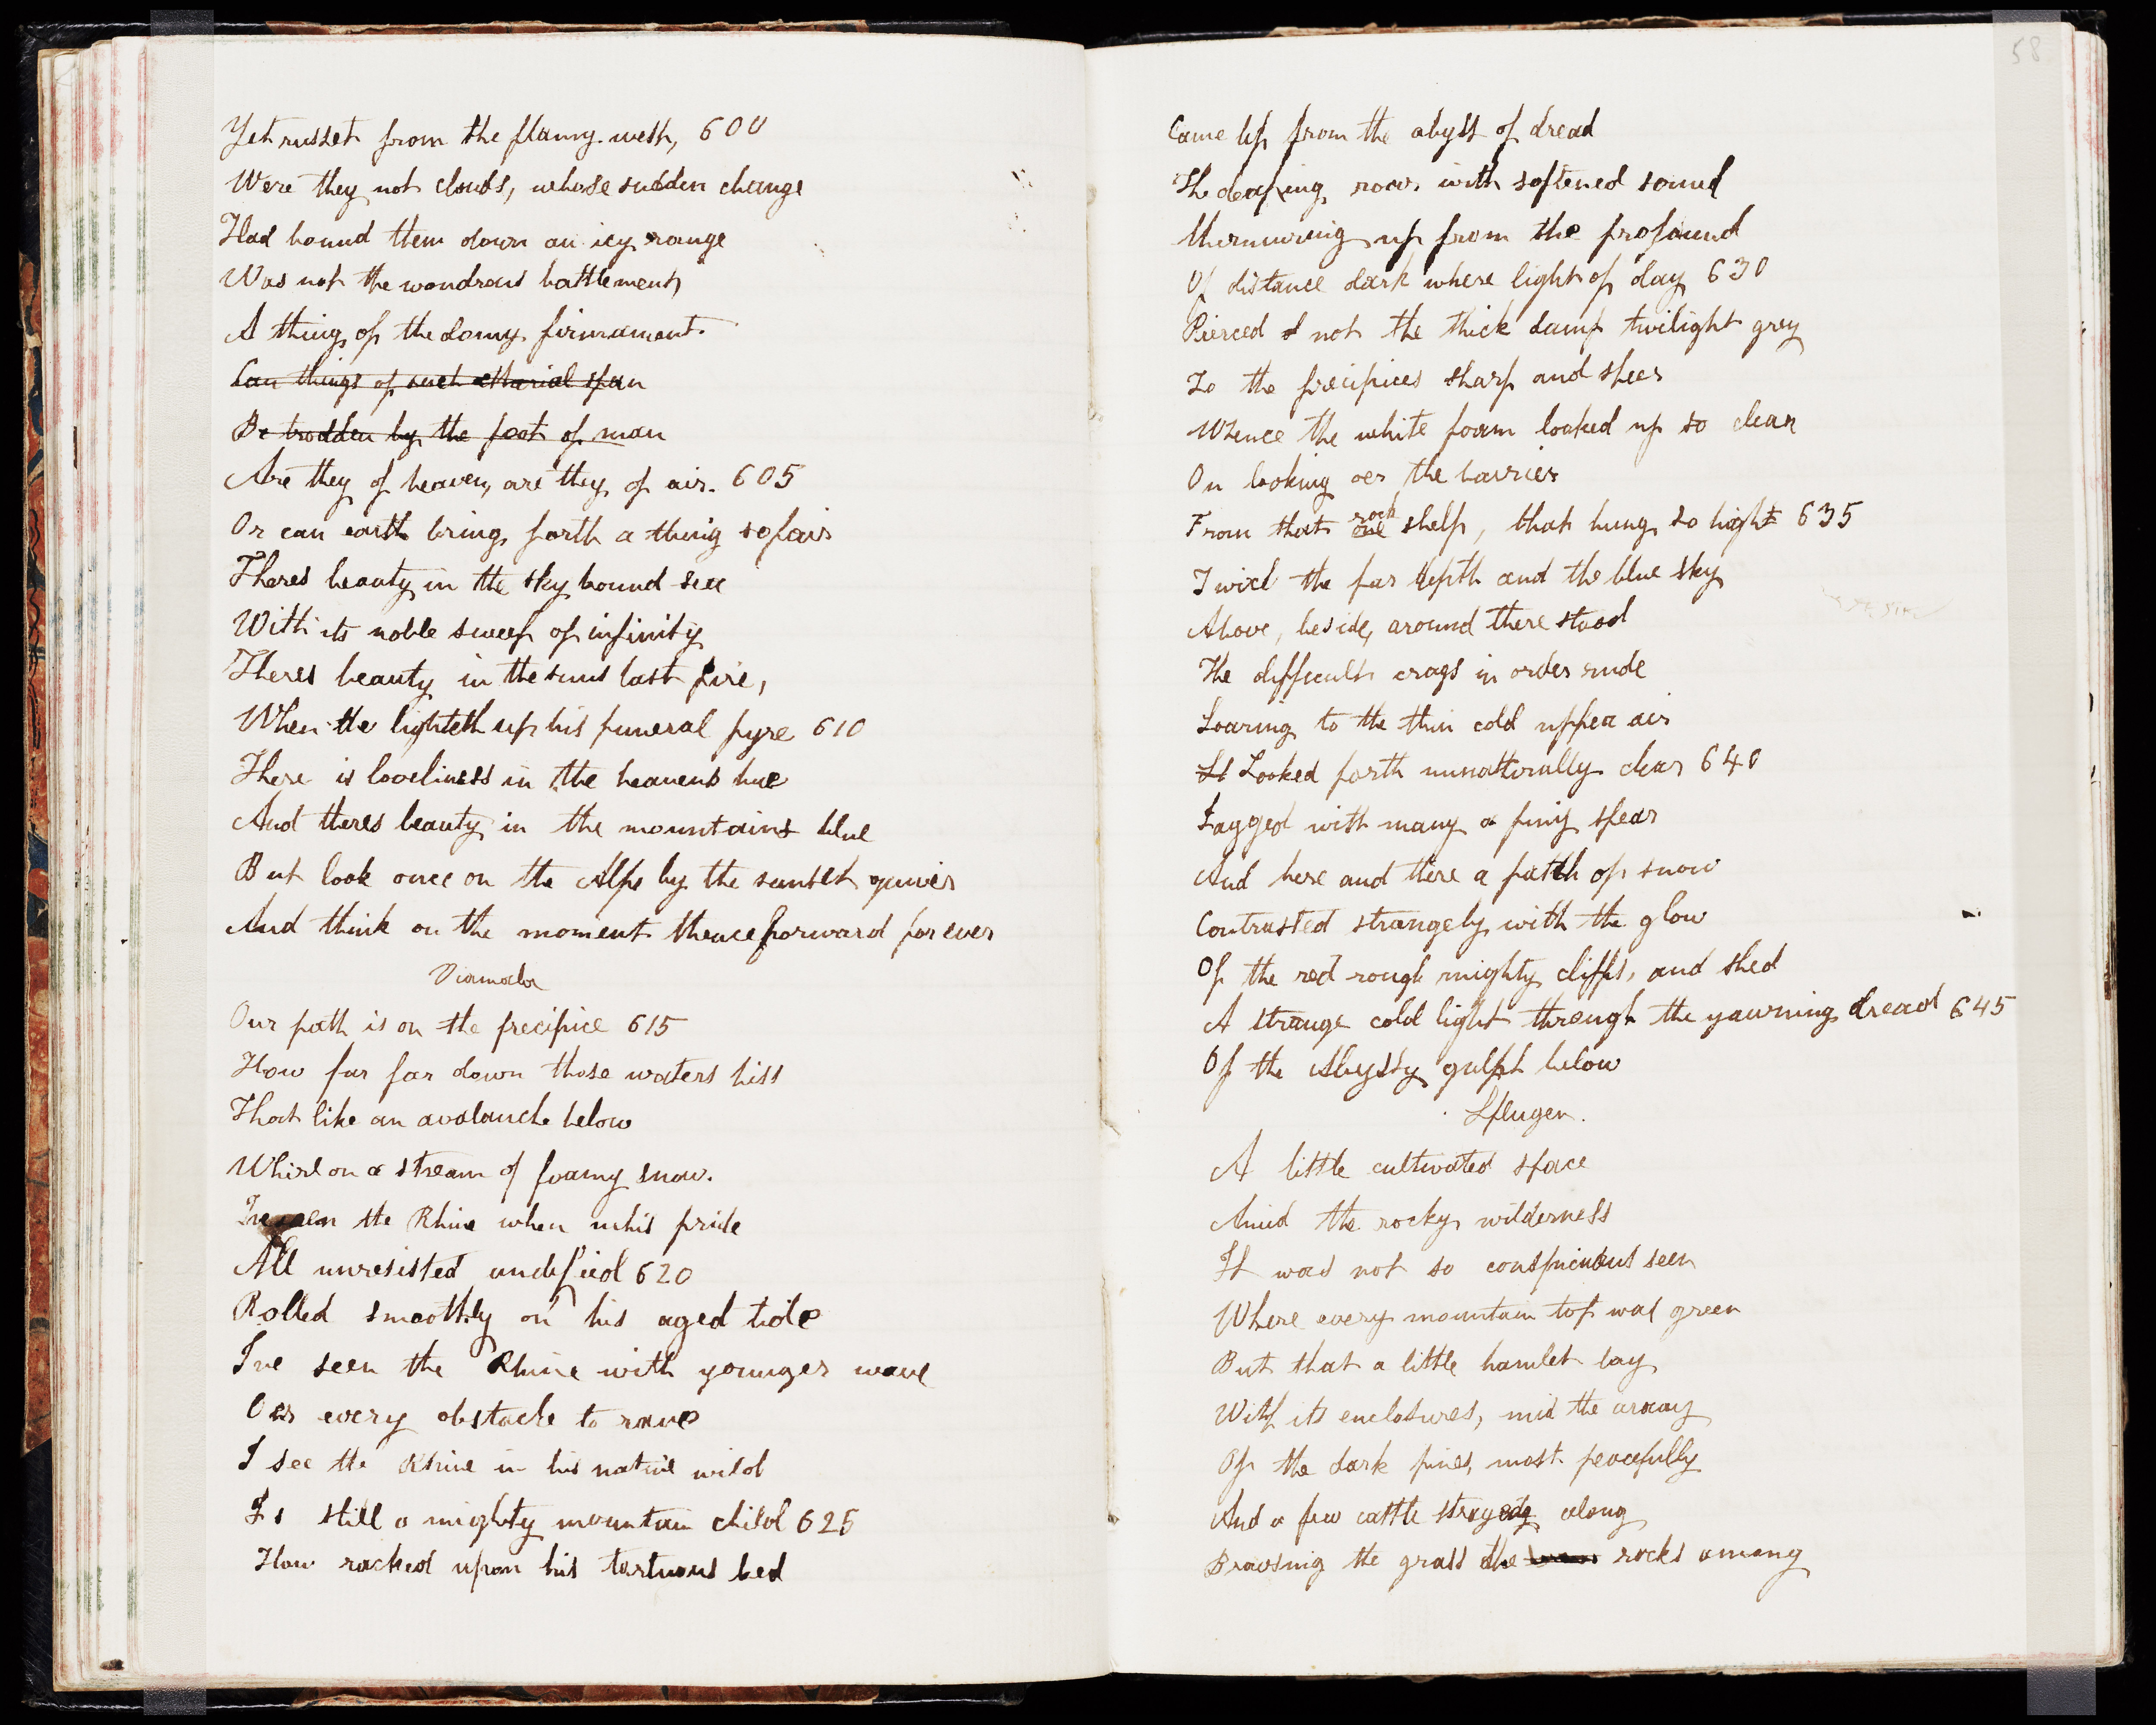 Yet russet from the flamy west, 600
Were they not clouds, whose sudden change
Had bound them down an icy range
Was not the wondrous battlement
A thing of the domy firmament.
Can things of such etherial span
Be trodden by the foot of man
Are they of heaven, are they of air. 605
Or can earth bring forth a thing so fair
Theres beauty in the sky bound sea
With its noble sweep of infinity
Theres beauty in the suns last fire,
When he lighteth up his funeral pyre 610
There is loveliness in the heavens hue
And theres beauty in the mountains blue
But look once on the Alps by the sunset quiver
And think on the moment thenceforward for ever
Viamala
Our path is on the precipice 615
How far far down those waters hiss
That like an avalanche below
Whirl on a stream of foamy snow.
Ive seen the Rhine when in his pride
All unresisted undefied 620
Rolled smoothly on his aged tide
Ive seen the Rhine with younger wave
Oer every obstacle to rave
I see the Rhine in his native wild
Is still a mighty mountain child 625
How racked upon his tortuous bed
58
Came up from the abyss of dread
The deafning roar with softened sound
Murmuring up from the profound
Of distance dark where light of day 630
Pierced not the thick damp twilight grey
To the precipices sharp and sheer
Whence the white foam looked up so clear
On looking oer the barrier
From that one rock shelf, that hung so high 635
Twixt the far depth and the blue sky
Above, beside, around there stood
The difficult crags in order rude
Soaring to the thin cold upper air
It Looked forth unnatturally clear 640
Jagged with many a piny spear
And here and there a patch of snow
Contrasted strangely with the glow
Of the red rough mighty cliffs, and shed
A strange cold light through the yawning dread 645
Of the abyssy gulph below
Splugen.
A little cultivated space
Amid the rocky wilderness
It was not so conspicuous seen
Where every mountain top was green
But that a little hamlet lay
With its enclosures, mid the array
Of the dark pines, most peacefully
And a few cattle strayed along
Browsing the grass the rocks among